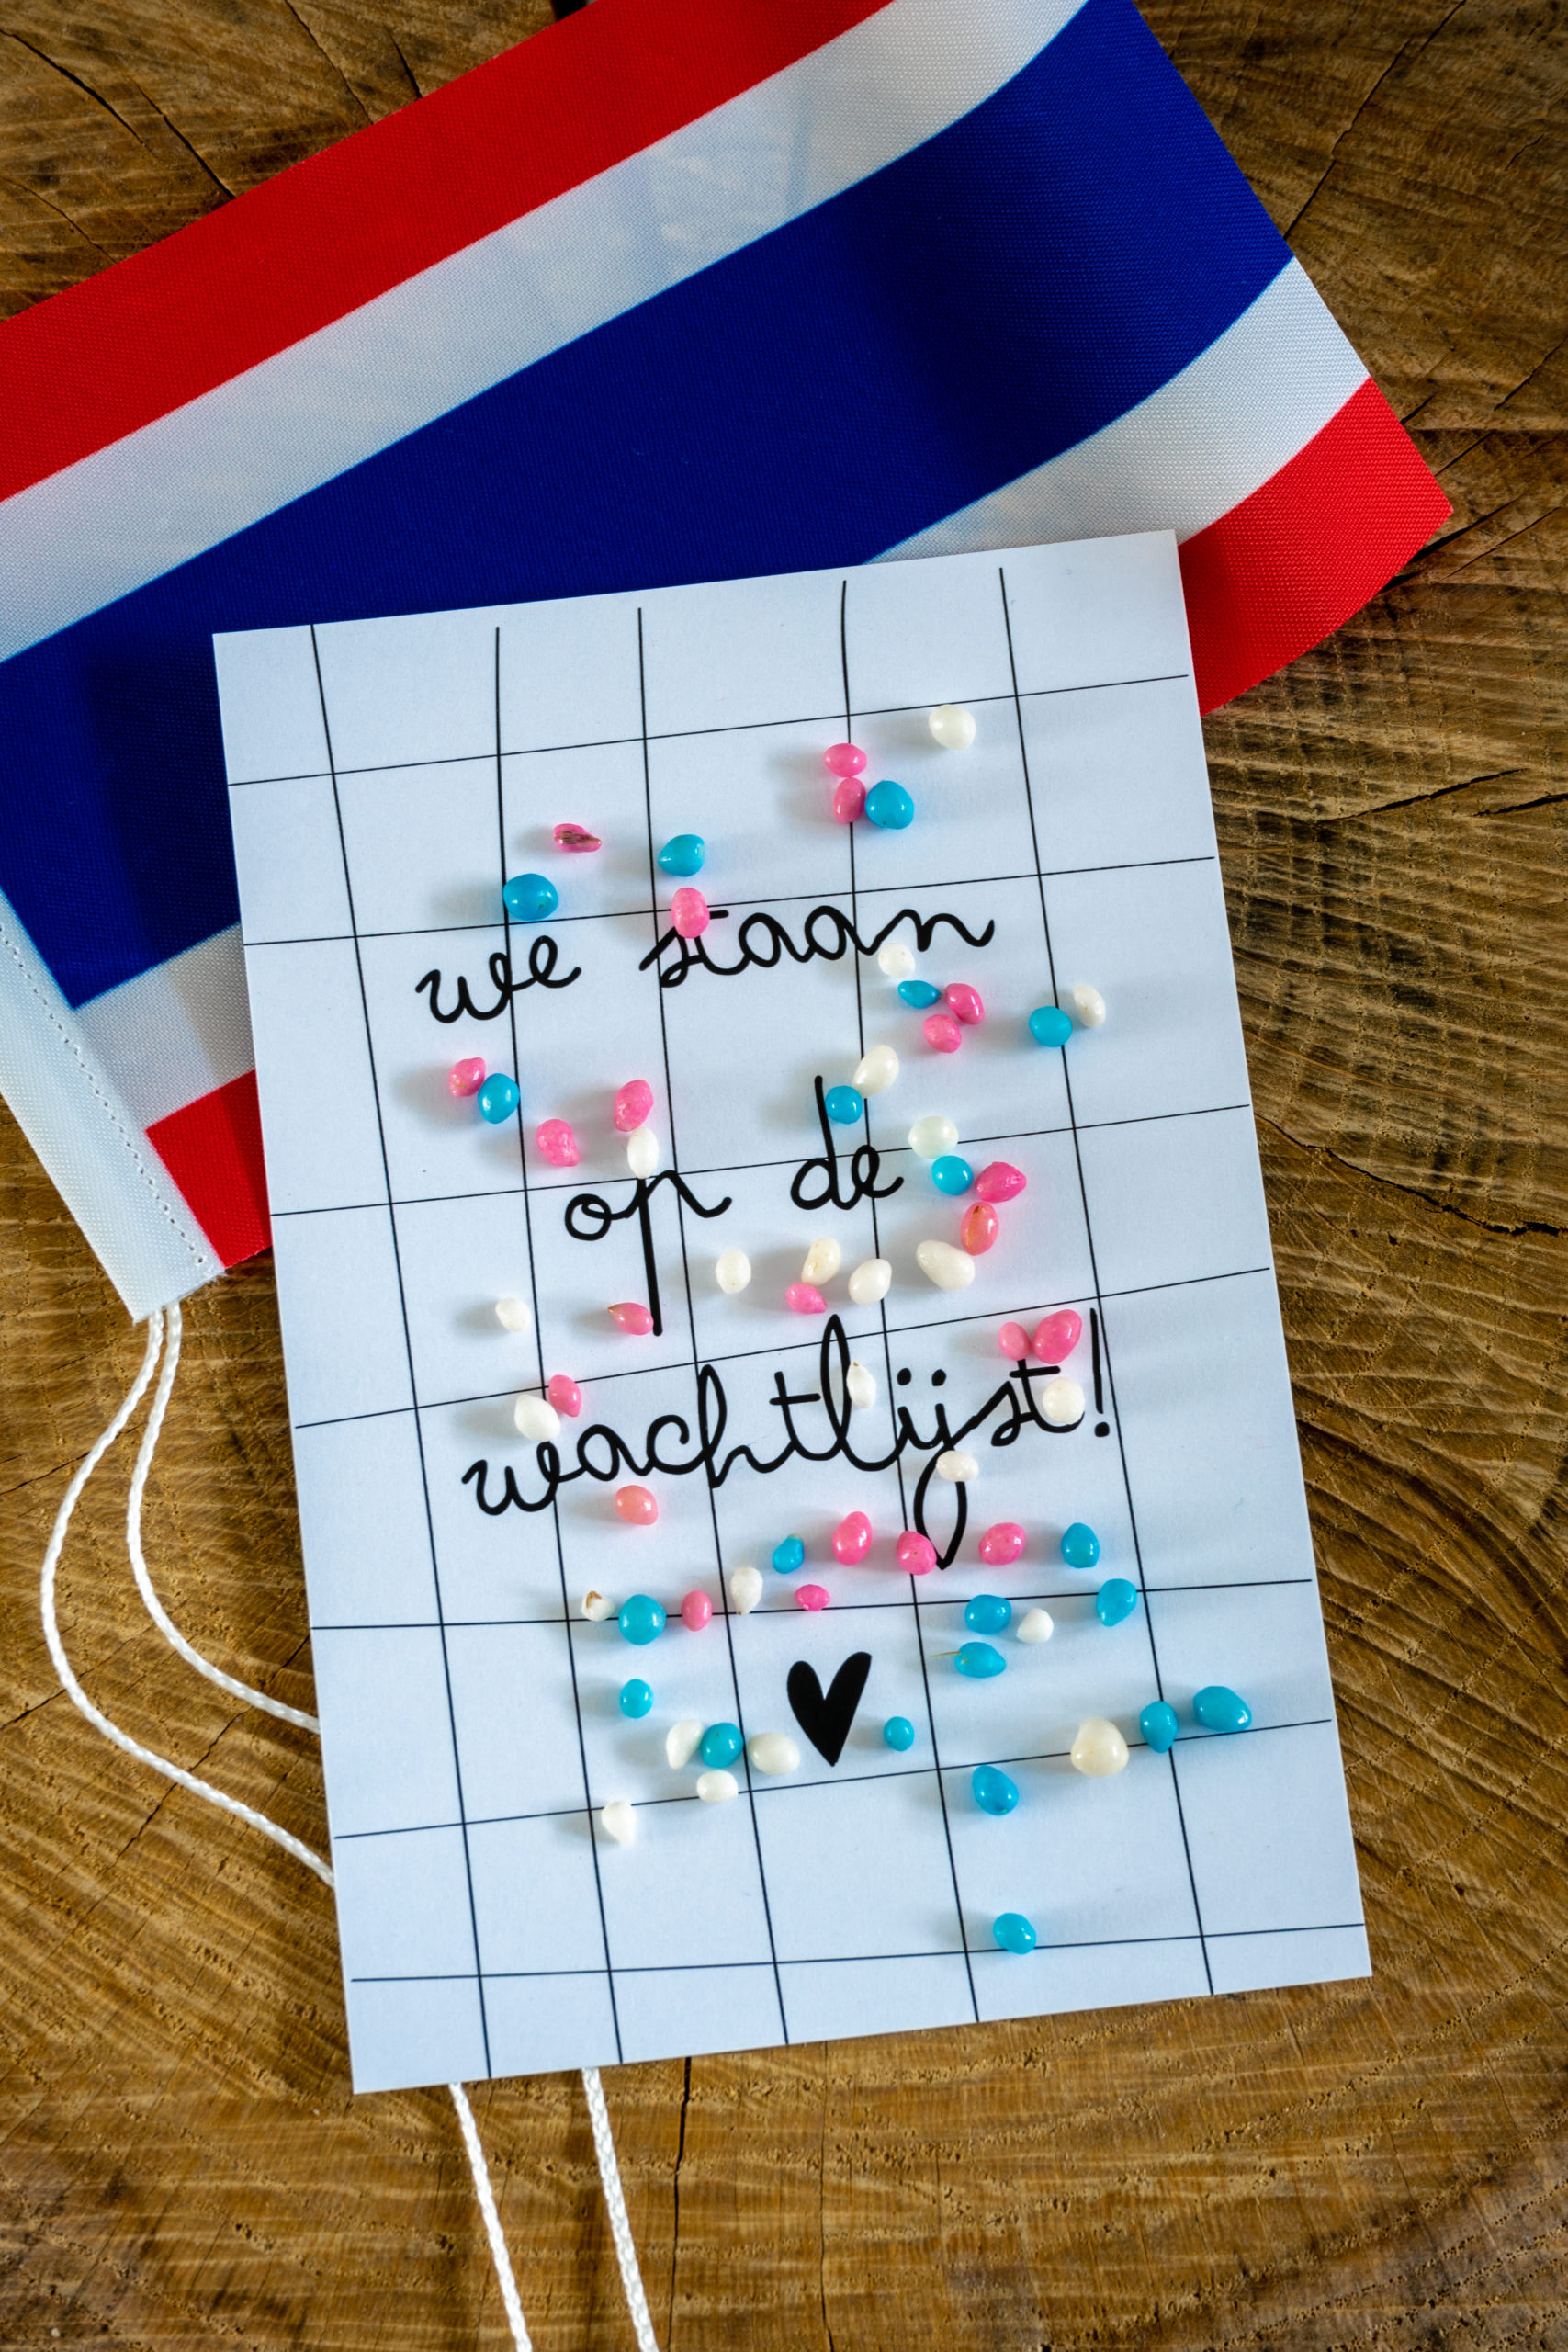 we staan
op de
wachtlijst!